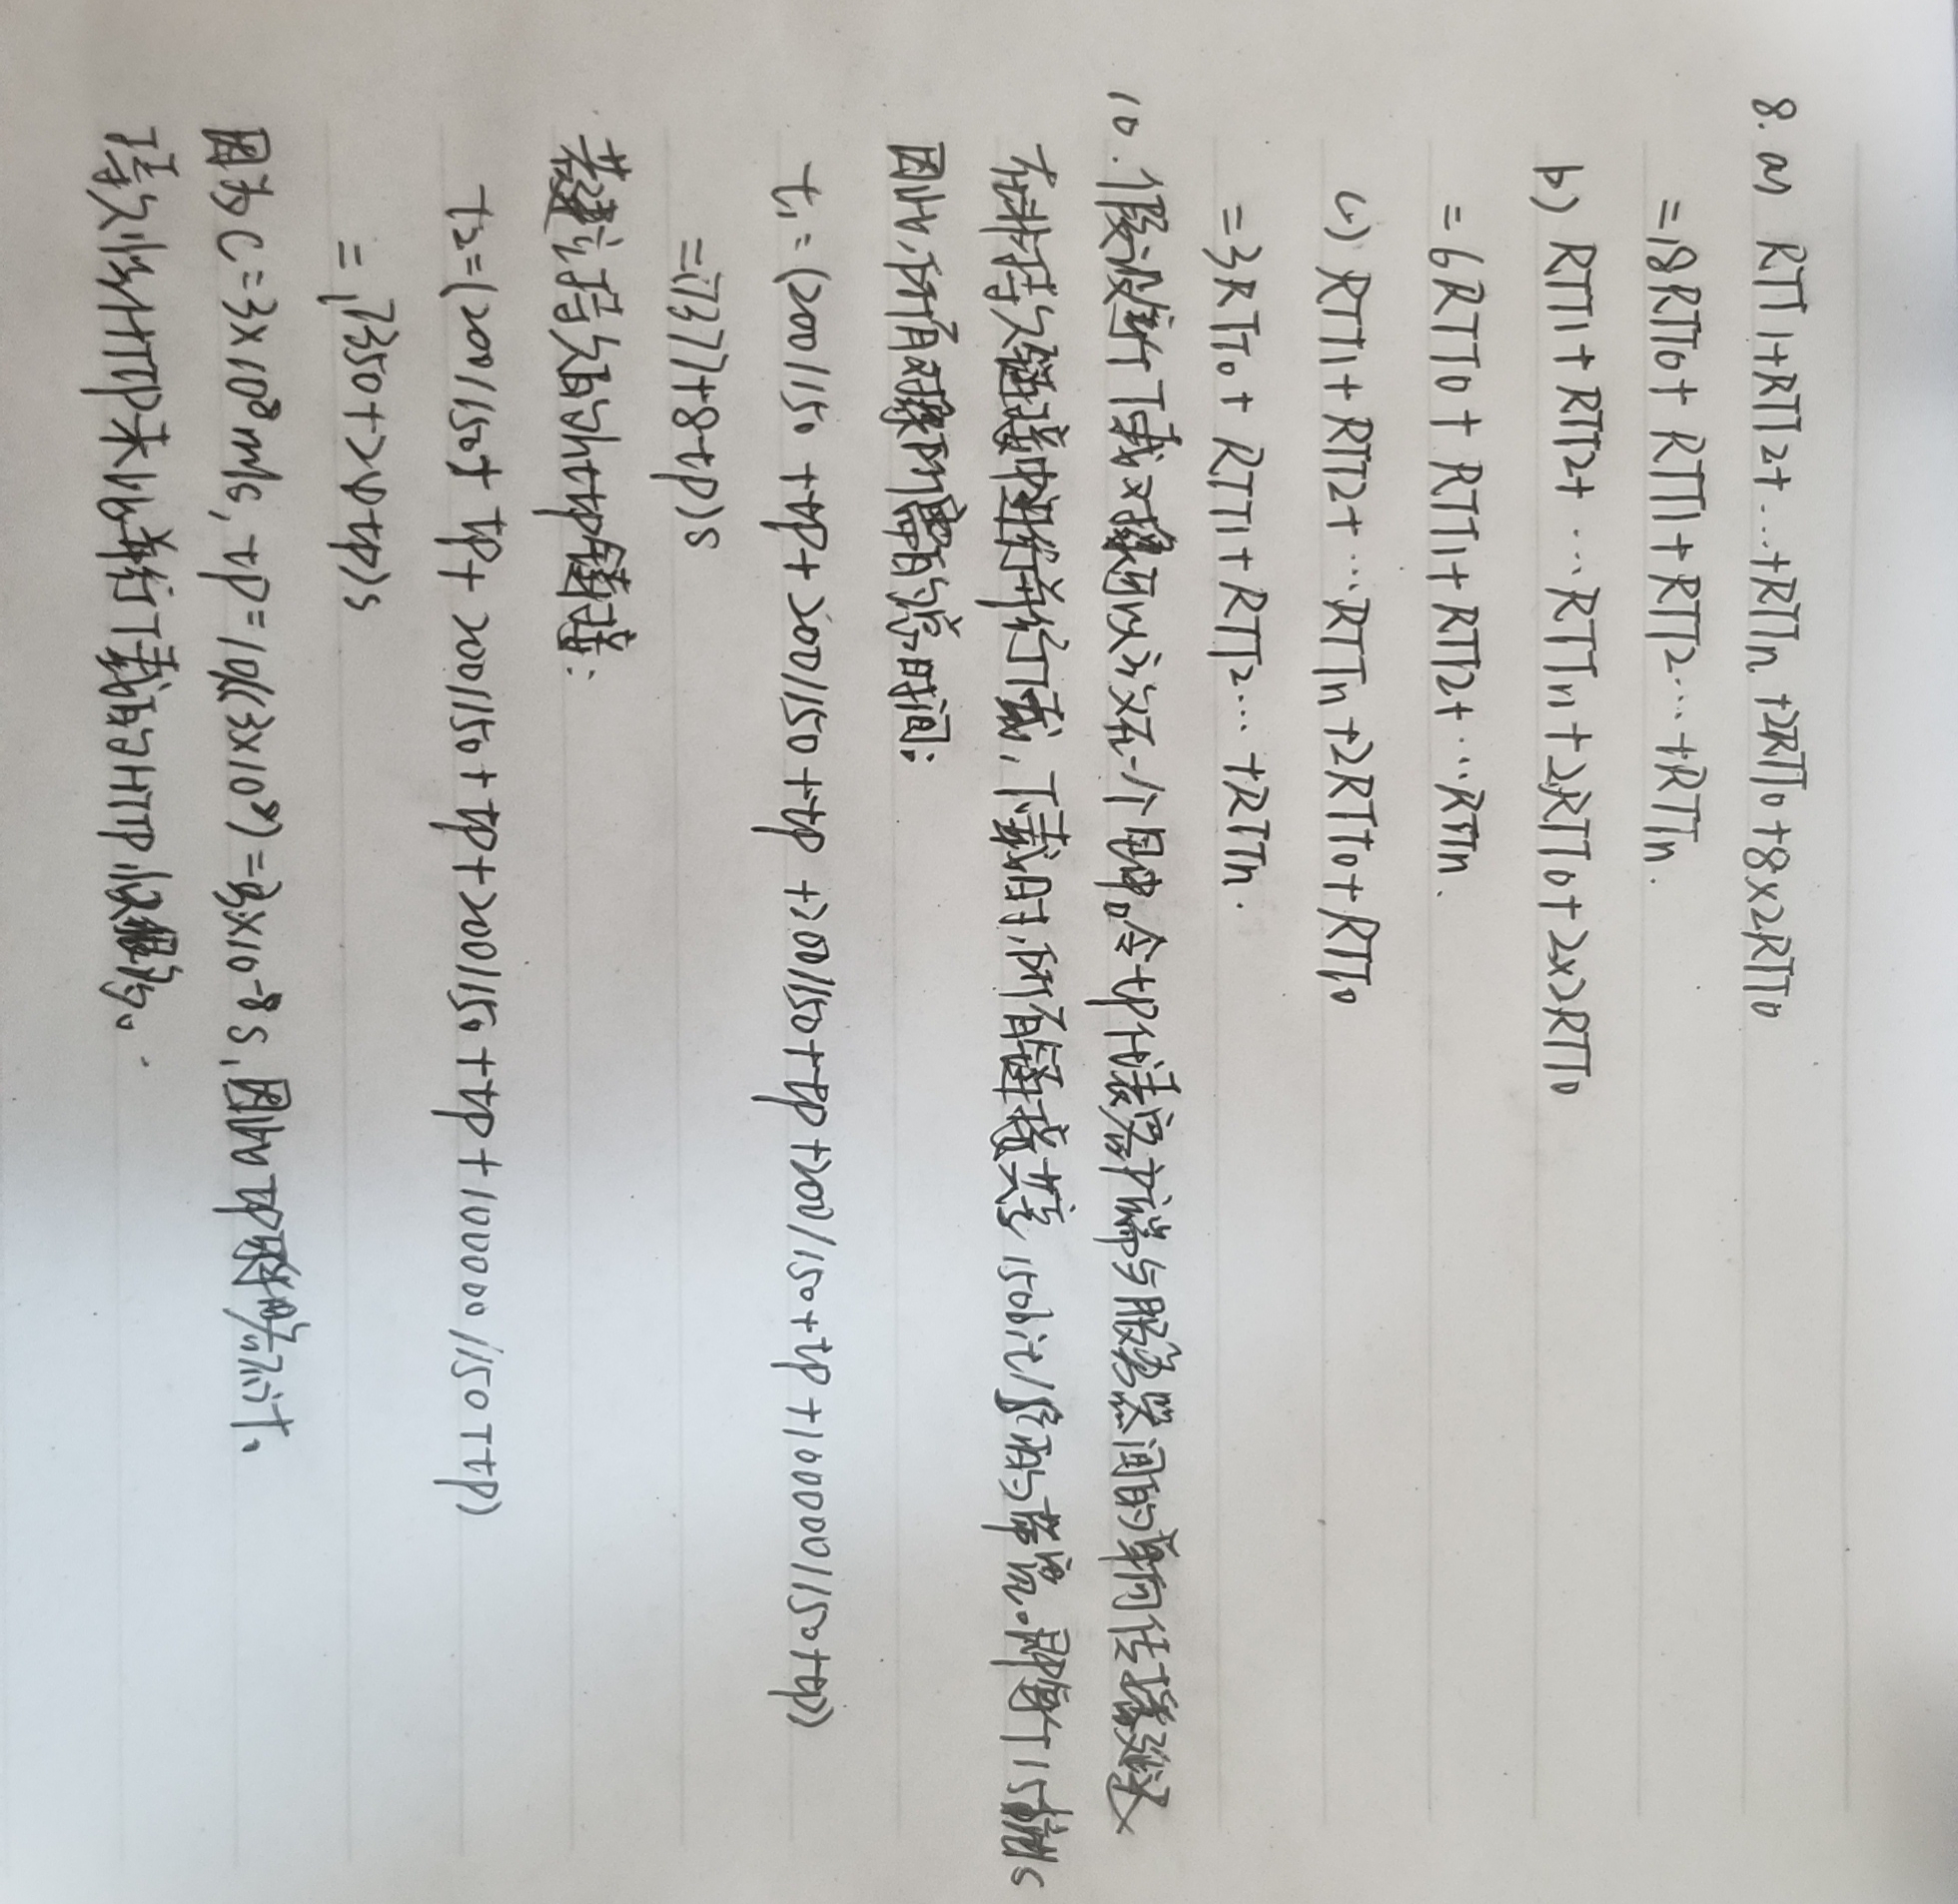 8. a) RTT1+RTT2+…+RTTn+2RTT0+8×2RTT0
=18RTT0+RTT1+RTT2…+RTTn.
b) RTT1+RTT2+…RTTn+2RTT0+2×2RTT0
=6RTT0+RTT1+RTT2+…RTTn.
c) RTT1+RTT2+…RTTn+2RTT0+RTT0
=3RTT0+RTT1+RTT2…+RTTn.
10. 假设每个下载对象可以放在一个包中。令tp代表客户端与服务器间的单向传播延迟
在非持久链接中进行并行下载,下载时,所有链接共享150bit/s的带宽。即每个15bit/s
因此,所有对象所需的总时间:
t1=(200/150+tp+200/150+tp+200/150+tp+200/150+tp+100000/150+tp)
=(7377+8tp)s
若考虑持久的http链接:
t2=(200/150+tp+200/150+tp+200/150+tp+100000/150+tp)
=(7350+24tp)s
因为C=3×10^8m/s,tp=10/(3×10^8)=3×10^-8s,因此tp忽略不计。
持久性HTTP未比并行下载的HTTP